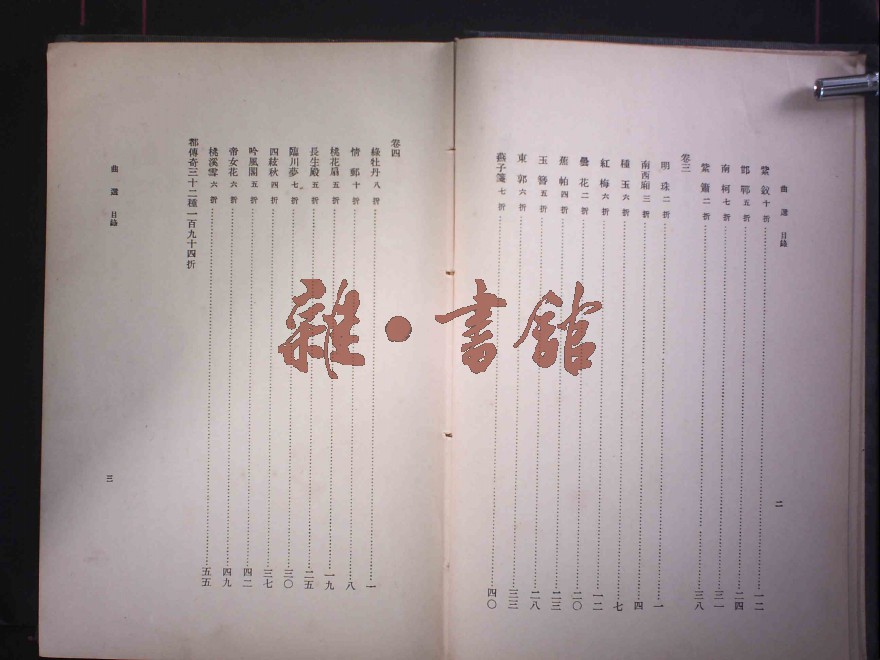 曲選 目錄
紫釵十折 一二
邯鄲五折 二四
南柯七折 三一
紫簫二折 三八
卷三
明珠二折 一
南西廂三折 四
種玉六折 七
紅梅六折 一二
曇花二折 二〇
蕉帕四折 二三
玉簪五折 二八
東郭六折 三三
燕子箋七折 四〇
二
卷四
綠牡丹八折 一
情郵十折 八
桃花扇五折 一九
長生殿五折 二五
臨川夢七折 三〇
四絃秋四折 三七
吟風閣五折 四二
帝女花六折 四九
桃溪雪六折 五五
都傳奇三十二種一百九十四折
曲選 目錄
三
雜·書館